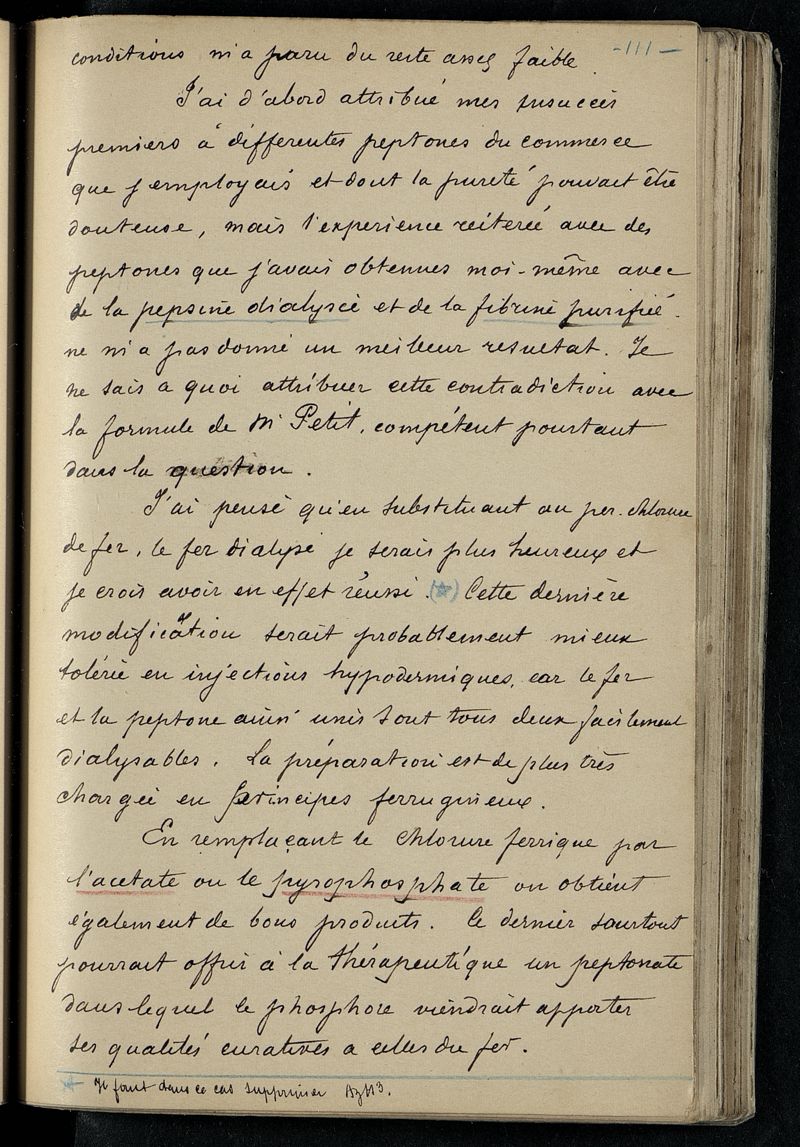 -111-
conditions m'a paru du reste assez faible.
J'ai d'abord attribué mes insuccès
premiers à différentes peptones du commerce
que j'employais et dont la pureté pouvait être
douteuse, mais l'experience réiterée avec des
peptones que j'avais obtenues moi-même avec
de la pepsine dialysée et de la fibrine purifiée.
ne m'a pas donné un meilleur resultat. Je
ne sais a quoi attribuer cette contradiction avec
la formule de Mr Petit, compétent pourtant
dans la question.
J'ai pensé qu'en substituant au per-chlorure
de fer, le fer dialysé je serais plus heureux et
je crois avoir en effet réussi. (☆) Cette dernière
modification serait probablement mieux
tolérée en injections hypodermiques, car le fer
et la peptone ainsi unis sont tous deux facilement
dialysables. La préparation est de plus très
chargée en principes ferrugineux.
En remplaçant le chlorure ferrique par
l'acetate ou le pyrophosphate on obtient
également de bons produits. Ce dernier surtout
pourrait offrir à la thérapeutique un peptonate
dans lequel le phosphore viendrait apporter
ses qualités curatives a celles du fer.
☆ Il faut dans ce cas supprimer AzH3.